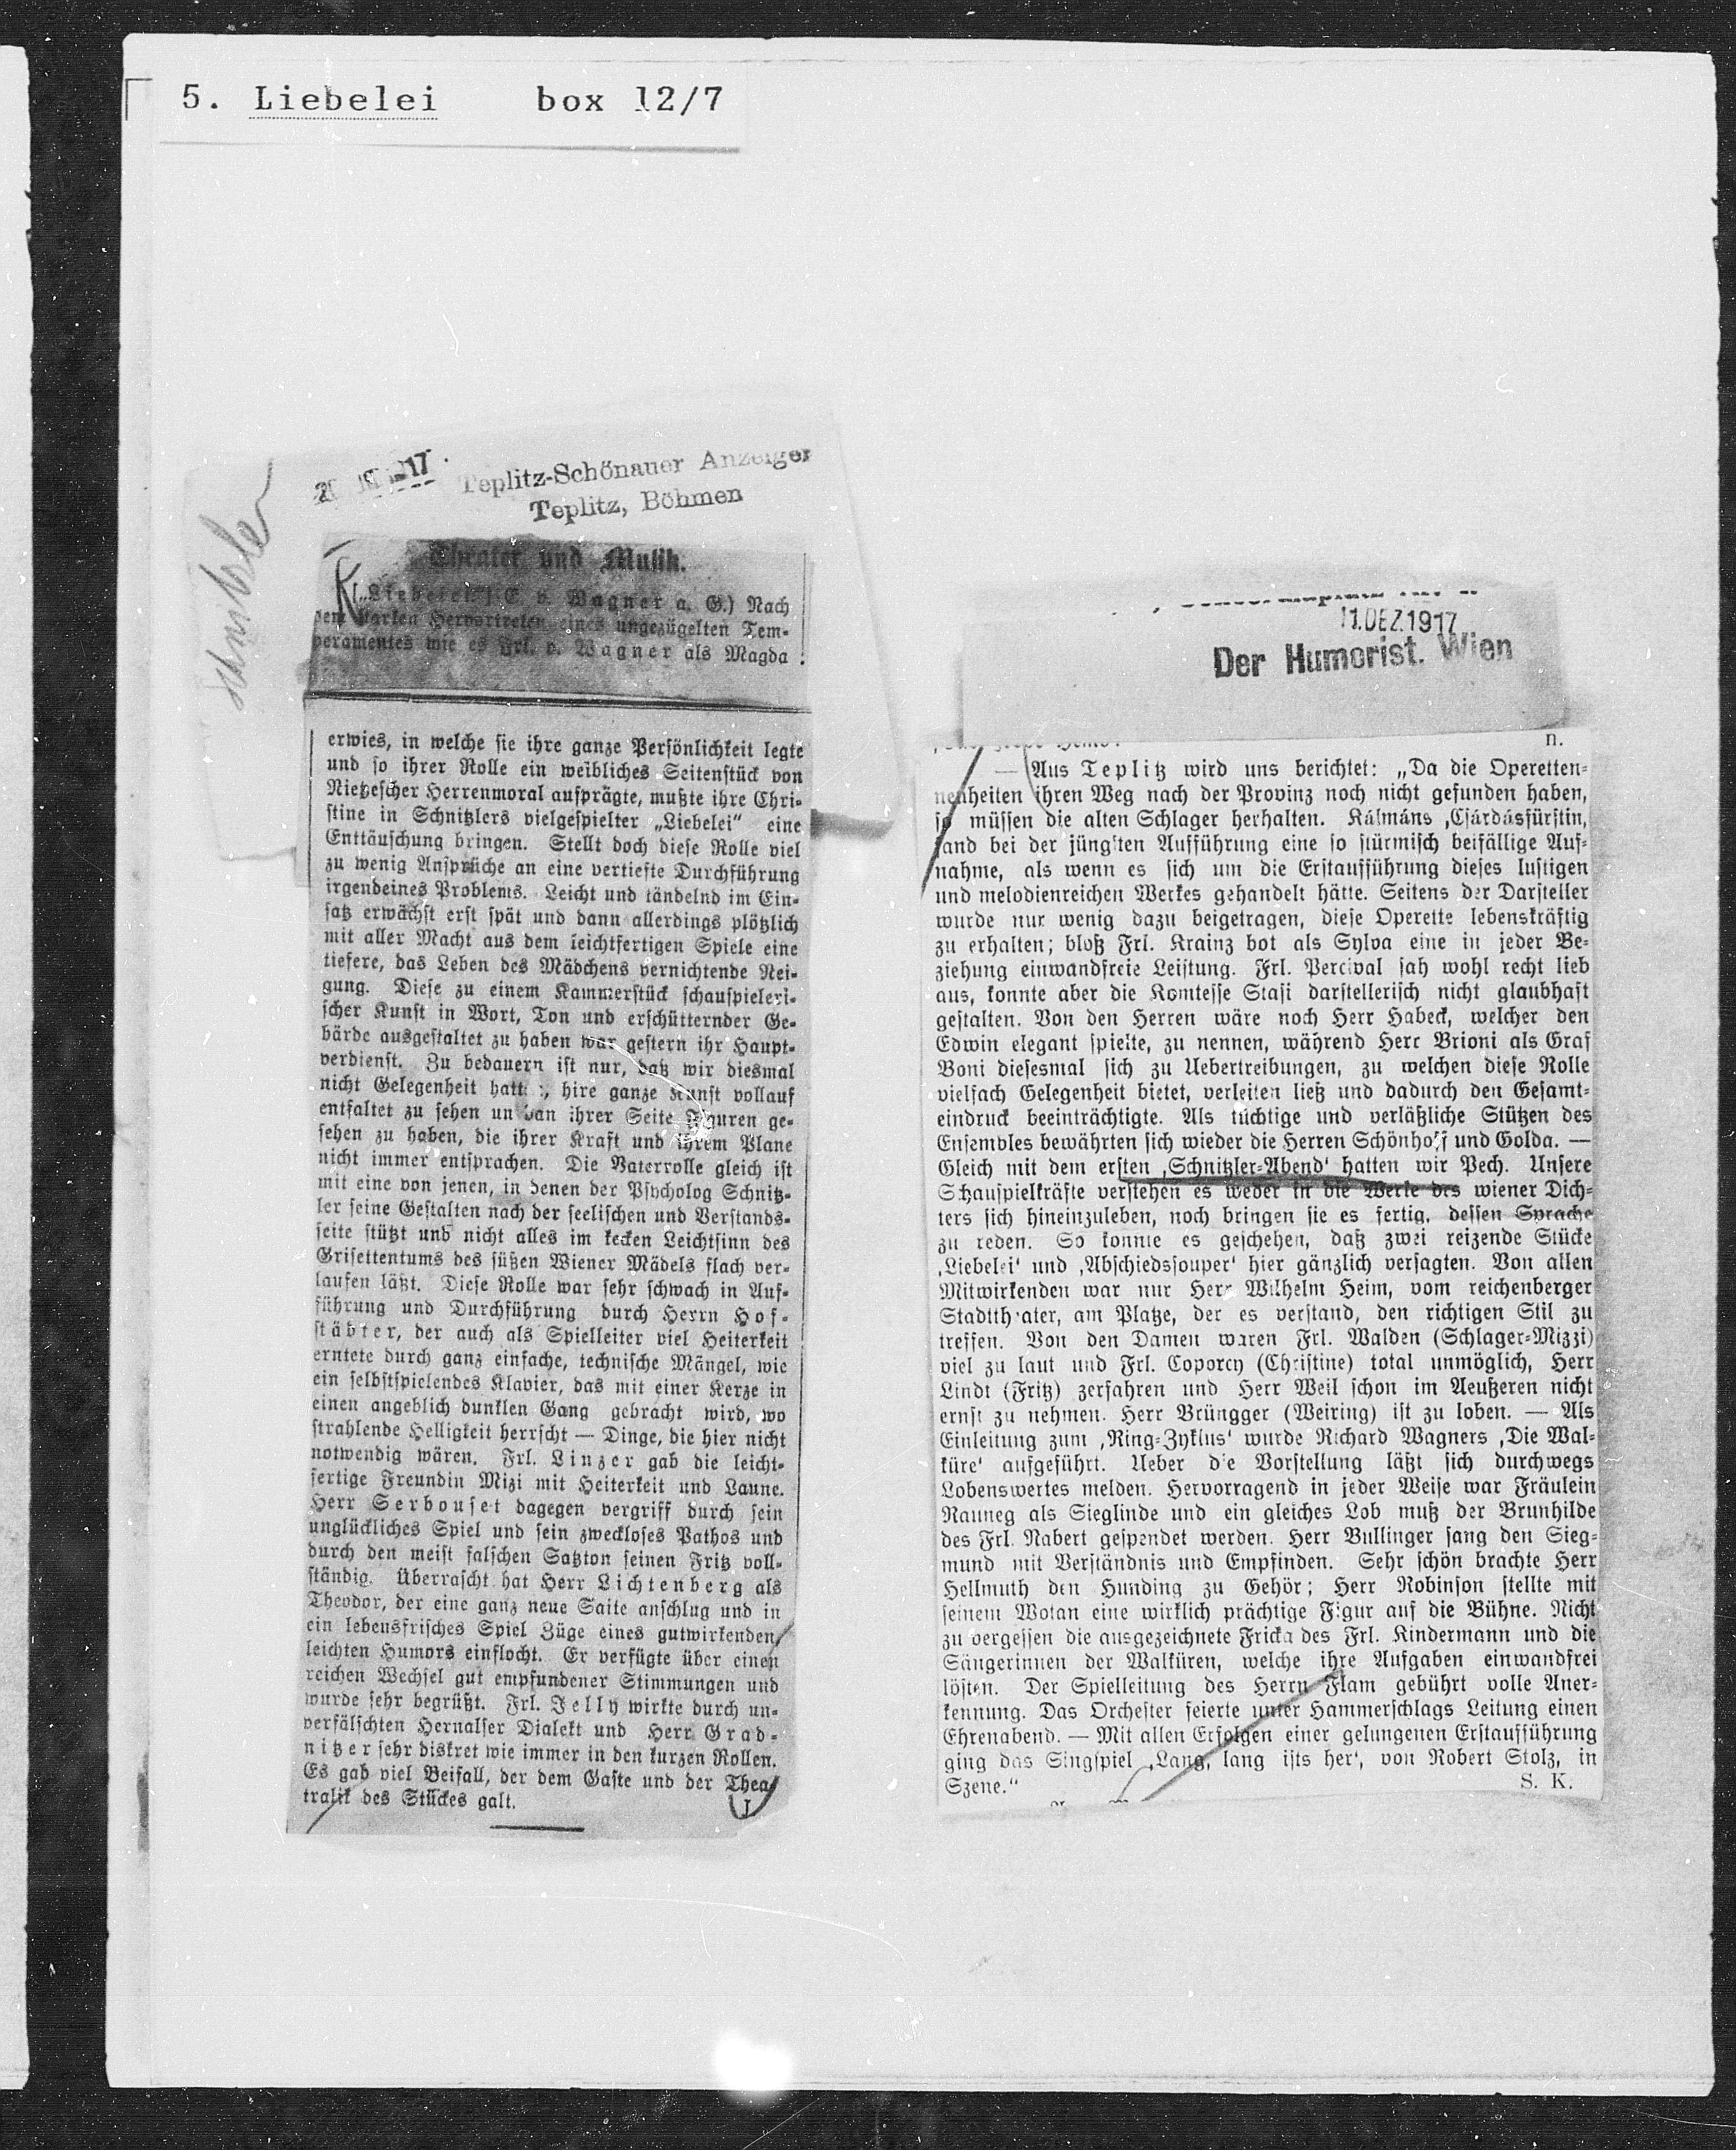 5. Liebelei box 12/7
Schnitzler
Teplitz-Schönauer Anzeiger
Teplitz, Böhmen
Theater und Musik.
(„Liebelei“ E. v. Wagner a. G.) Nach
dem starken Hervortreten eines ungezügelten Tem-
peramentes wie es Frl. v. Wagner als Magda
erwies, in welche sie ihre ganze Persönlichkeit legte
und so ihrer Rolle ein weibliches Seitenstück von
Nietzescher Herrenmoral aufprägte, mußte ihre Chri-
stine in Schnitzlers vielgespielter „Liebelei“ eine
Enttäuschung bringen. Stellt doch diese Rolle viel
zu wenig Ansprüche an eine vertiefte Durchführung
irgendeines Problems. Leicht und tändelnd im Ein-
satz erwächst erst spät und dann allerdings plötzlich
mit aller Macht aus dem leichtfertigen Spiele eine
tiefere, das Leben des Mädchens vernichtende Nei-
gung. Diese zu einem Kammerstück schauspieleri-
scher Kunst in Wort, Ton und erschütternder Ge-
bärde ausgestaltet zu haben war gestern ihr Haupt-
verdienst. Zu bedauern ist nur, daß wir diesmal
nicht Gelegenheit hatt , hire ganze Kunst vollauf
entfaltet zu sehen un van ihrer Seite Figuren ge-
sehen zu haben, die ihrer Kraft und ihrem Plane
nicht immer entsprachen. Die Vaterrolle gleich ist
mit eine von jenen, in denen der Psycholog Schnitz-
ler seine Gestalten nach der seelischen und Verstands-
seite stützt und nicht alles im kecken Leichtsinn des
Grisettentums des süßen Wiener Mädels flach ver-
laufen läßt. Diese Rolle war sehr schwach in Auf-
führung und Durchführung durch Herrn Hof-
städter, der auch als Spielleiter viel Heiterkeit
erntete durch ganz einfache, technische Mängel, wie
ein selbstspielendes Klavier, das mit einer Kerze in
einen angeblich dunklen Gang gebracht wird, wo
strahlende Helligkeit herrscht — Dinge, die hier nicht
notwendig wären. Frl. Linzer gab die leicht-
fertige Freundin Mizi mit Heiterkeit und Laune.
Herr Serbouset dagegen vergriff durch sein
unglückliches Spiel und sein zweckloses Pathos und
durch den meist falschen Satzton seinen Fritz voll-
ständig. Überrascht hat Herr Lichtenberg als
Theodor, der eine ganz neue Saite anschlug und in
ein lebensfrisches Spiel Züge eines gutwirkenden
leichten Humors einflocht. Er verfügte über einen
reichen Wechsel gut empfundener Stimmungen und
wurde sehr begrüßt. Frl. Jelly wirkte durch un-
verfälschten Hernalser Dialekt und Herr Grad-
nitzer sehr diskret wie immer in den kurzen Rollen.
Es gab viel Beifall, der dem Gaste und der Thea-
tralik des Stückes galt. J.
11. DEZ. 1917
Der Humorist. Wien
n.
— Aus Teplitz wird uns berichtet: „Da die Operetten-
neuheiten ihren Weg nach der Provinz noch nicht gefunden haben,
so müssen die alten Schlager herhalten. Kálmáns ‚Csárdásfürstin‚
fand bei der jüngsten Aufführung eine so stürmisch beifällige Auf-
nahme, als wenn es sich um die Erstaufführung dieses lustigen
und melodienreichen Werkes gehandelt hätte. Seitens der Darsteller
wurde nur wenig dazu beigetragen, diese Operette lebenskräftig
zu erhalten; bloß Frl. Krainz bot als Sylva eine in jeder Be-
ziehung einwandfreie Leistung. Frl. Percival sah wohl recht lieb
aus, konnte aber die Komtesse Stasi darstellerisch nicht glaubhaft
gestalten. Von den Herren wäre noch Herr Habeck, welcher den
Edwin elegant spielte, zu nennen, während Herr Brioni als Graf
Boni diesesmal sich zu Uebertreibungen, zu welchen diese Rolle
vielfach Gelegenheit bietet, verleiten ließ und dadurch den Gesamt-
eindruck beeinträchtigte. Als tüchtige und verläßliche Stützen des
Ensembles bewährten sich wieder die Herren Schönhoff und Golda. —
Gleich mit dem ersten ‚Schnitzler-Abend‘ hatten wir Pech. Unsere
Schauspielkräfte verstehen es weder in die Werke des wiener Dich-
ters sich hineinzuleben, noch bringen sie es fertig, dessen Sprache
zu reden. So konnte es geschehen, daß zwei reizende Stücke
‚Liebelei‘ und ‚Abschiedssouper‘ hier gänzlich versagten. Von allen
Mitwirkenden war nur Herr Wilhelm Heim, vom reichenberger
Stadttheater, am Platze, der es verstand, den richtigen Stil zu
treffen. Von den Damen waren Frl. Walden (Schlager-Mizzi)
viel zu laut und Frl. Coporcy (Christine) total unmöglich, Herr
Lindt (Fritz) zerfahren und Herr Weil schon im Aeußeren nicht
ernst zu nehmen. Herr Brüngger (Weiring) ist zu loben. — Als
Einleitung zum ‚Ring-Zyklus‘ wurde Richard Wagners ‚Die Wal-
küre‘ aufgeführt. Ueber die Vorstellung läßt sich durchwegs
Lobenswertes melden. Hervorragend in jeder Weise war Fräulein
Rauneg als Sieglinde und ein gleiches Lob muß der Brunhilde
des Frl. Nabert gespendet werden. Herr Bullinger sang den Sieg-
mund mit Verständnis und Empfinden. Sehr schön brachte Herr
Hellmuth den Hunding zu Gehör; Herr Robinson stellte mit
seinem Wotan eine wirklich prächtige Figur auf die Bühne. Nicht
zu vergessen die ausgezeichnete Fricka des Frl. Kindermann und die
Sängerinnen der Walküren, welche ihre Aufgaben einwandfrei
lösten. Der Spielleitung des Herrn Flam gebührt volle Aner-
kennung. Das Orchester feierte unter Hammerschlags Leitung einen
Ehrenabend. — Mit allen Erfolgen einer gelungenen Erstaufführung
ging das Singspiel ‚Lang, lang ists her‘, von Robert Stolz, in
Szene.“ S. K.